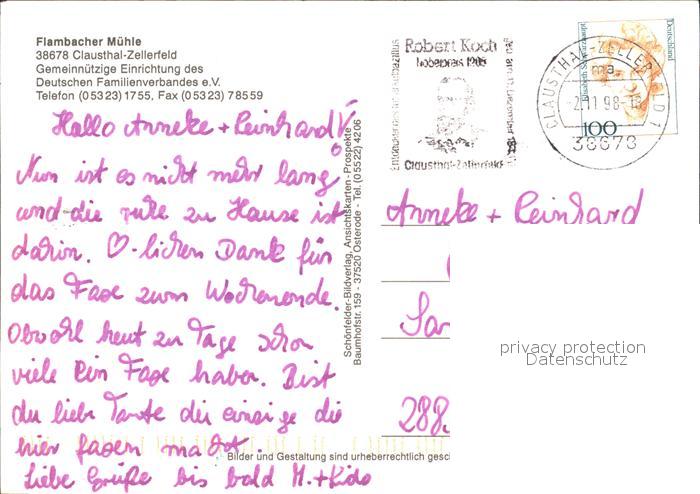 Flambacher Mühle
38678 Clausthal-Zellerfeld
Gemeinnützige Einrichtung des
Deutschen Familienverbandes e.V.
Telefon (05323) 1755, Fax (05323) 78559
Hallo Anneke + Reinhard!
Nun ist es nicht mehr lang
und die ruhe zu Hause ist
dahin. ♡-lichen Dank für
das Faxe zum Wochenende.
Obwohl heut zu Tage schon
viele Ein Faxe haben. Bist
du liebe Tante die einzige die
hier faxen macht.
Liebe Grüße bis bald M.+Kids
Schönfelder-Bildverlag, Ansichtskarten-Prospekte
Baumhofstr. 159 - 37520 Osterode - Tel. (05522) 4206
Bilder und Gestaltung sind urheberrechtlich gesc
Robert Koch
Nobelpreis 1905
Clausthal-Zellerfeld
CLAUSTHAL-ZELLERFELD 1
ma
-2.11.98-18
38678
Deutschland
Elisabeth Schwarzhaupt
100
Anneke + Reinhard
Sar
288
privacy protection
Datenschutz